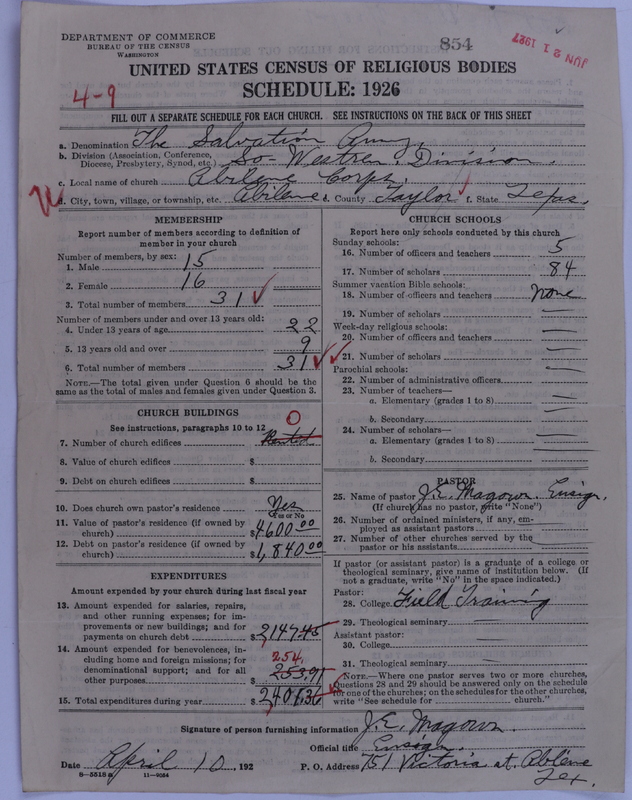 DEPARTMENT OF COMMERCE
BUREAU OF THE CENSUS
WASHINGTON
854
JUN 21 1927
UNITED STATES CENSUS OF RELIGIOUS BODIES
SCHEDULE: 1926
4-9
FILL OUT A SEPARATE SCHEDULE FOR EACH CHURCH. SEE INSTRUCTIONS ON THE BACK OF THIS SHEET
a. Denomination The Salvation Army.
b. Division (Association, Conference, Diocese, Presbytery, Synod, etc.) So-Westren Division.
c. Local name of church Abilene Corps.
d. City, town, village, or township, etc. Abilene d. County Taylor f. State Texas.
MEMBERSHIP
Report number of members according to definition of
member in your church
Number of members, by sex:
1. Male 15
2. Female 16
3. Total number of members 31
Number of members under and over 13 years old:
4. Under 13 years of age 22
5. 13 years old and over 9
6. Total number of members 31
NOTE.—The total given under Question 6 should be
same as the total of males and females given under Question 3.
CHURCH BUILDINGS
See instructions, paragraphs 10 to 12
0
7. Number of church edifices Rented
8. Value of church edifices $
9. Debt on church edifices $
10. Does church own pastor's residence Yes
Yes or No
11. Value of pastor's residence (if owned by
church) $4600.00
12. Debt on pastor's residence (if owned by
church) $1,840.00
EXPENDITURES
Amount expended by your church during last fiscal year
13. Amount expended for salaries, repairs,
and other running expenses; for im-
provements or new buildings; and for
payments on church debt $2,147.45
14. Amount expended for benevolences, in-
cluding home and foreign missions; for
denominational support; and for all
other purposes $253.91
254.
15. Total expenditures during year $2,401.36
CHURCH SCHOOLS
Report here only schools conducted by this church
Sunday schools:
16. Number of officers and teachers 5
17. Number of scholars 84
Summer vacation Bible schools:
18. Number of officers and teachers none
19. Number of scholars
Week-day religious schools:
20. Number of officers and teachers
21. Number of scholars
Parochial schools:
22. Number of administrative officers
23. Number of teachers—
a. Elementary (grades 1 to 8)
b. Secondary
24. Number of scholars—
a. Elementary (grades 1 to 8)
b. Secondary
PASTOR
25. Name of pastor J.E. Magown. Ensign.
(If church has no pastor, write "None")
26. Number of ordained ministers, if any, em-
ployed as assistant pastors
27. Number of other churches served by the
pastor or his assistants
If pastor (or assistant pastor) is a graduate of a college or
theological seminary, give name of institution below. (If
not a graduate, write "No" in the space indicated.)
Pastor:
28. College Field Training
29. Theological seminary
Assistant pastor:
30. College
31. Theological seminary
NOTE.—Where one pastor serves two or more churches,
Questions 28 and 29 should be answered only on the schedule
for one of the churches; on the schedules for the other churches,
write "See schedule for church."
Signature of person furnishing information J.E. Magown.
Official title Ensign.
Date April 10, 192
P. O. Address 751 Victoria st. Abilene
Tex.
8-5515a 11-9054